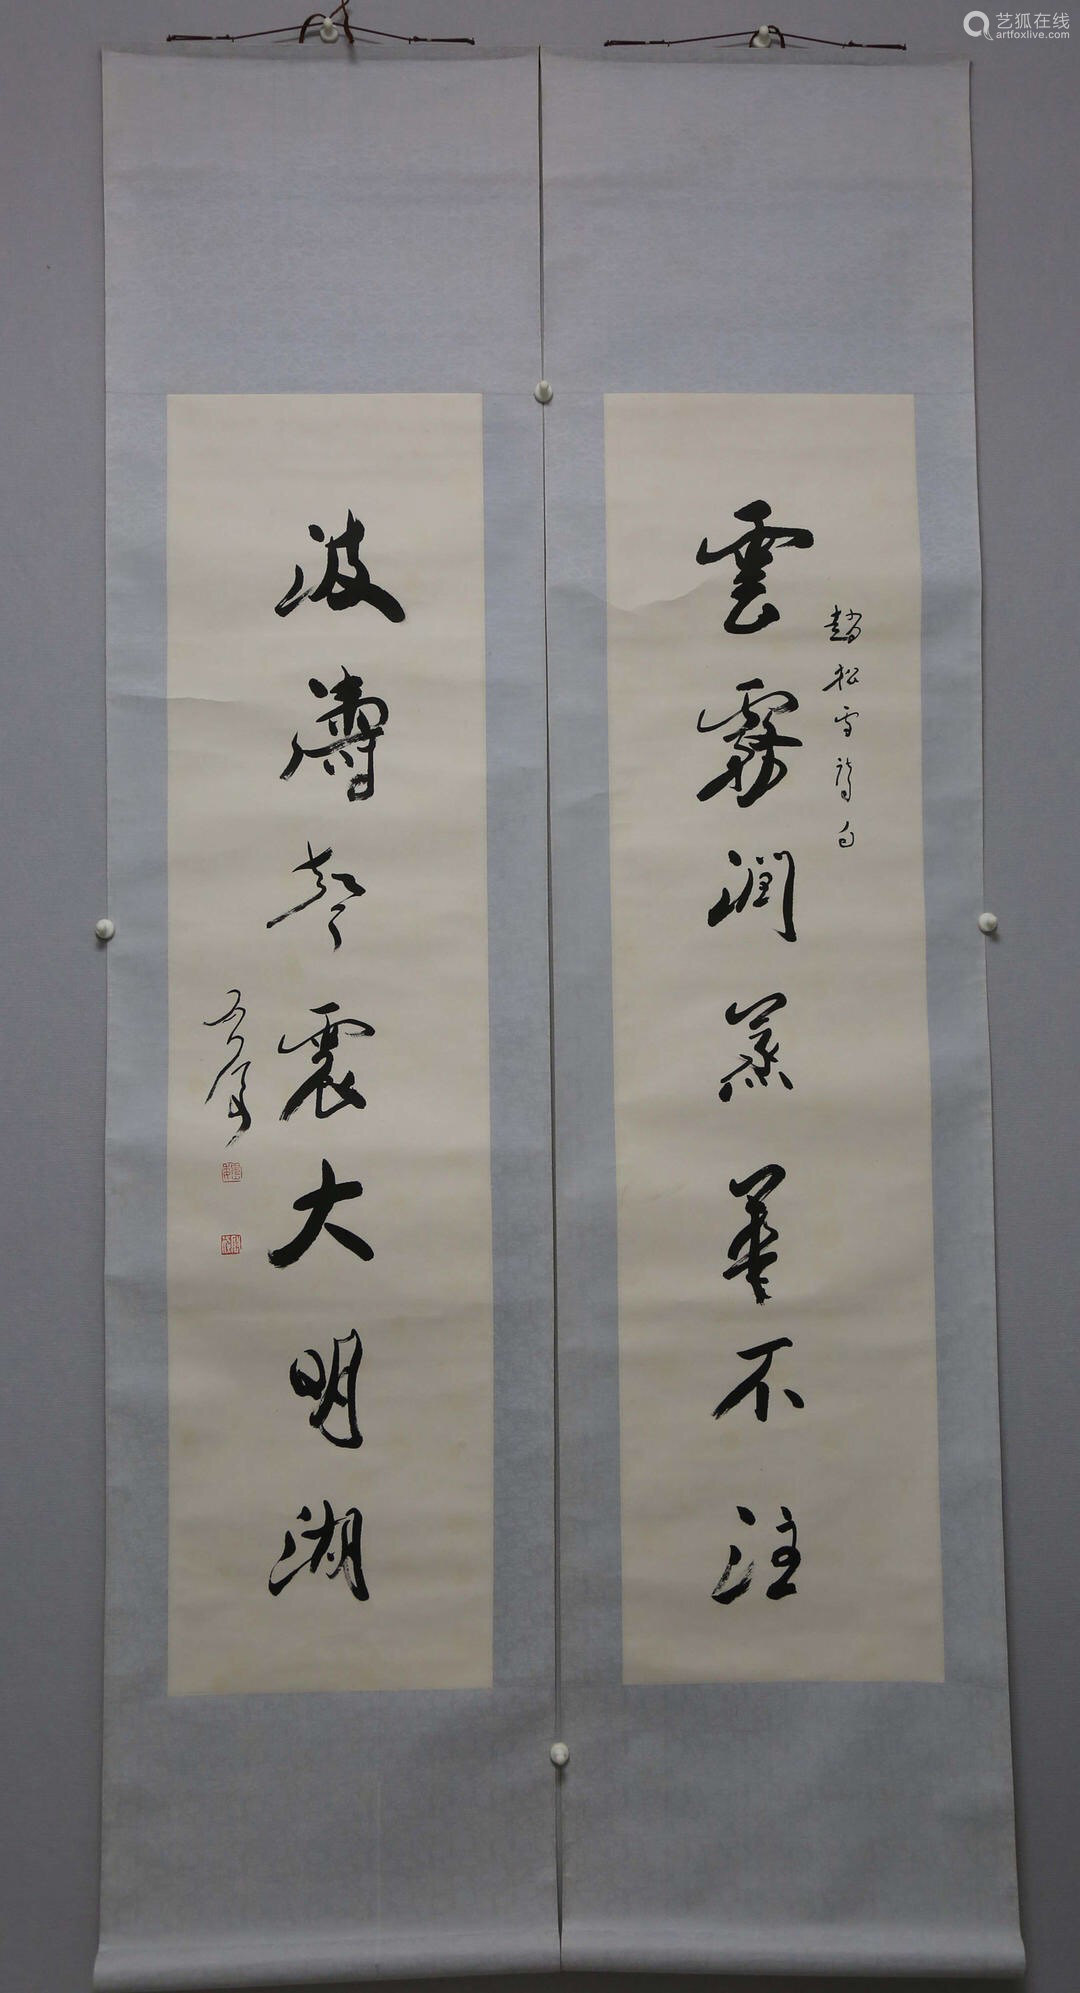 雲霧潤蒸華不注
趙松雪詩句
波濤聲震大明湖
艺狐在线
artfoxlive.com